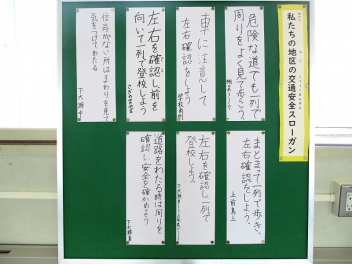 私たちの地区の交通安全スローガン
危険な道でも一列で
周りをよく見て歩こう。
車に注意して
左右確認をしよう
左右を確認し前を
向いて一列で登校しよう
信号がない所はまわりを見て
気をつけてわたる
まとまって一列で歩き、
左右確認をしよう。
左右を確認し、一列で
登校しよう。
道路をわたる時は周りを
確認し、安全を確かめよう